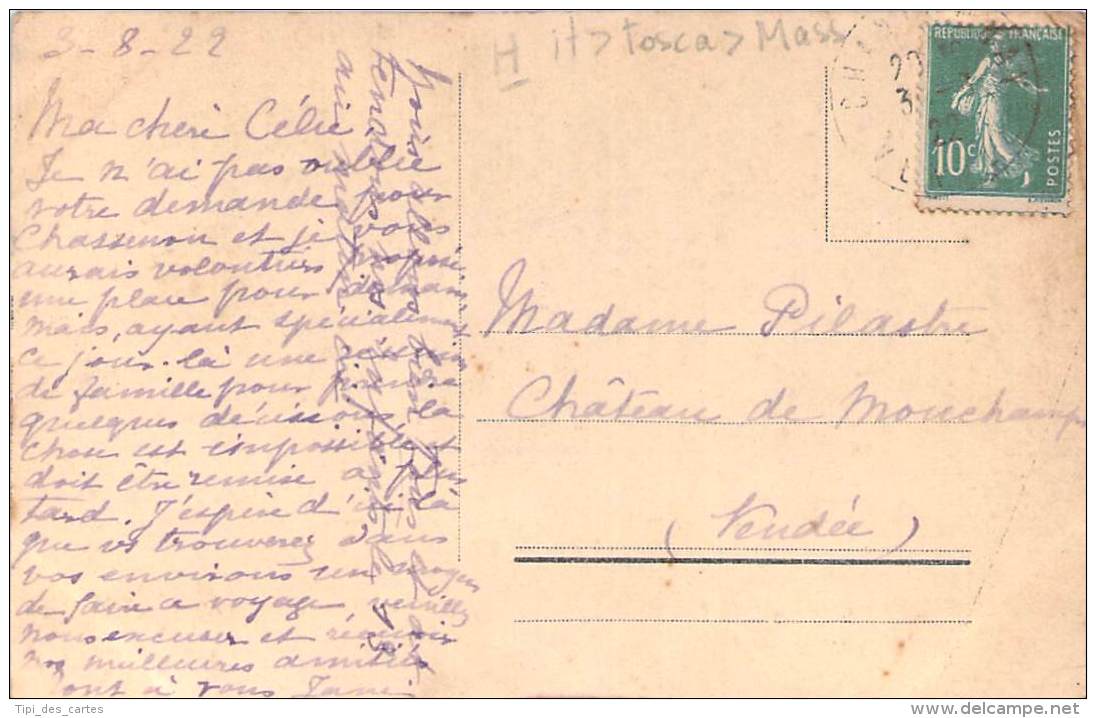 3-8-22
H it > Tosca > Mass
REPUBLIQUE FRANÇAISE
10c
POSTES
Ma chère Célie
Je n'ai pas oublié
votre demande pour
Chassenon et je vous
aurais volontiers proposé
une place pour demain
mais, ayant spécialement
ce jour-là une réunion
de famille pour prendre
quelques décisions la
chose est impossible et
doit être remise à plus
tard. J'espère d'ici là
que vs trouverez dans
vos environs un moyen
de faire ce voyage, veuillez
nous excuser et recevoir
nos meilleures amitiés
Tout à vous
Madame Pilastre
Château de Mouchamps
(Vendée)
Nous allons bien
Tipi_des_cartes
delcampe.net